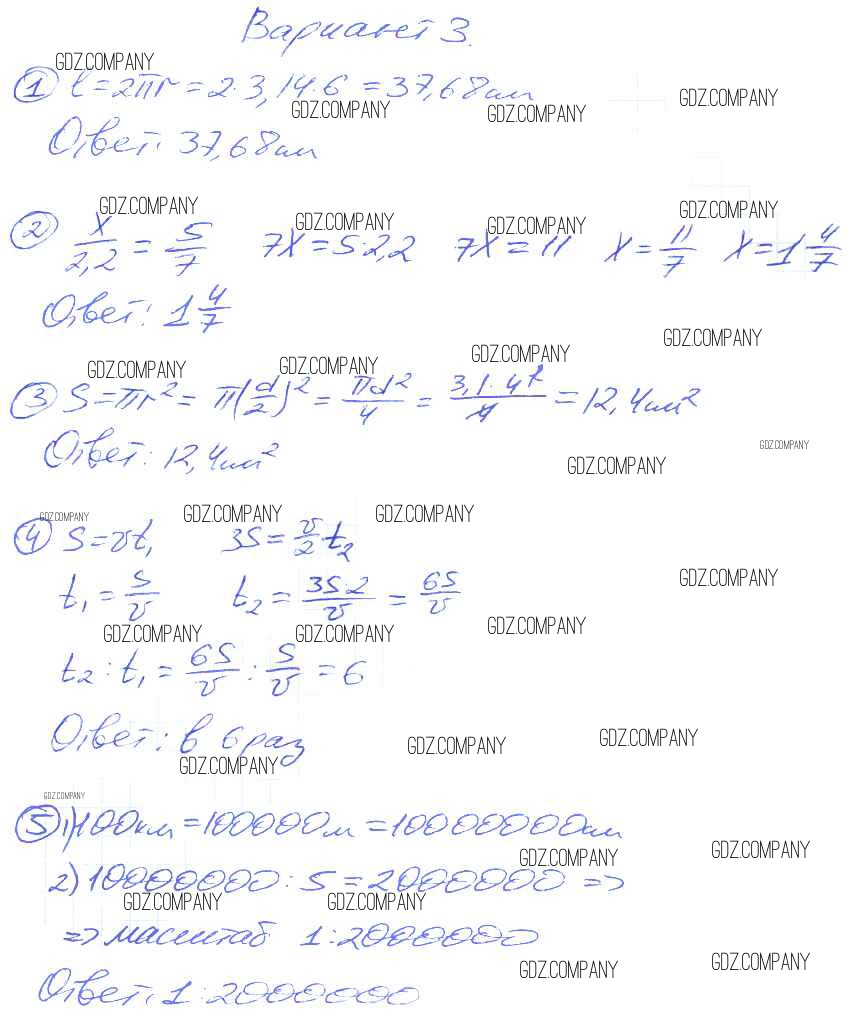 Вариант 3.
GDZ.COMPANY
① l = 2πr = 2·3,14·6 = 37,68 см
GDZ.COMPANY GDZ.COMPANY GDZ.COMPANY
Ответ: 37,68 см
GDZ.COMPANY GDZ.COMPANY GDZ.COMPANY GDZ.COMPANY
② x/2,2 = 5/7 7x = 5·2,2 7x = 11 x = 11/7 x = 1 4/7
Ответ: 1 4/7
GDZ.COMPANY
GDZ.COMPANY GDZ.COMPANY GDZ.COMPANY
③ S = πr² = π(d/2)² = πd²/4 = 3,1·4²/4 = 12,4 см²
Ответ: 12,4 см²
GDZ.COMPANY GDZ.COMPANY
GDZ.COMPANY GDZ.COMPANY GDZ.COMPANY
④ S = vt₁ 3S = v/2 t₂
t₁ = S/v t₂ = 3S·2/v = 6S/v
GDZ.COMPANY
GDZ.COMPANY GDZ.COMPANY GDZ.COMPANY
t₂ : t₁ = 6S/v : S/v = 6
Ответ: в 6 раз
GDZ.COMPANY GDZ.COMPANY GDZ.COMPANY
GDZ.COMPANY
⑤ 1) 100 км = 100000 м = 10000000 см
GDZ.COMPANY GDZ.COMPANY
2) 10000000 : 5 = 2000000 =>
GDZ.COMPANY GDZ.COMPANY
=> масштаб 1:2000000
GDZ.COMPANY GDZ.COMPANY
Ответ: 1:2000000